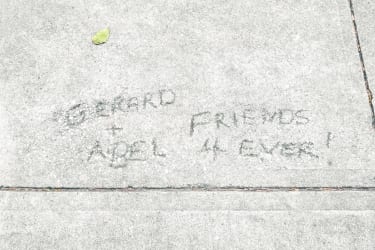 GERARD
+
ADEL
FRIENDS
4 EVER!